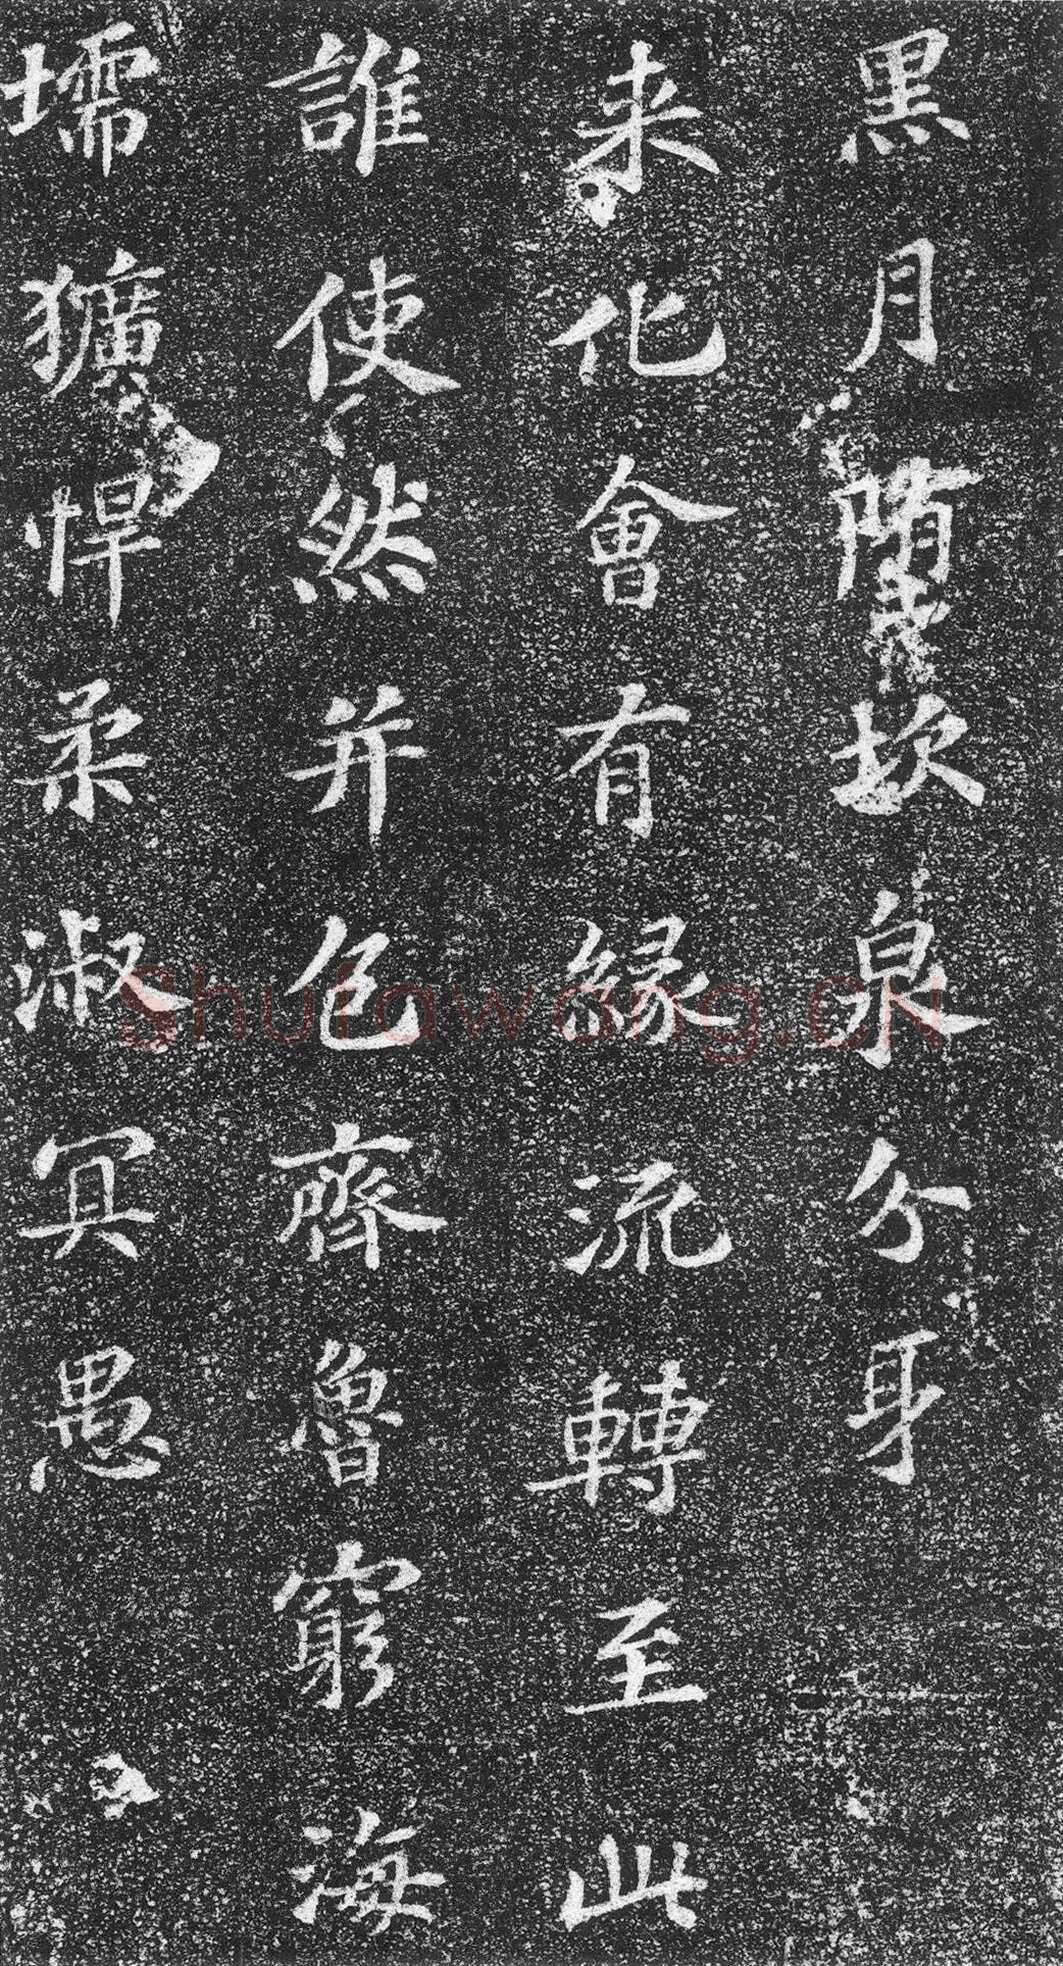 黑月堕坎泉分身
来化會有縁流轉至此
誰使然并包齊魯窮海
壖獷悍柔淑冥愚
Shufawang.CN